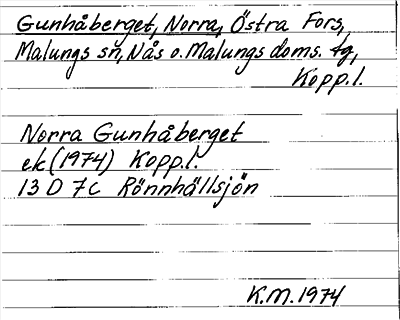 Gunhåberget, Norra, Östra Fors,
Malungs sn, Nås o. Malungs doms. tg,
Kopp.l.
Norra Gunhåberget
ek (1974) Kopp.l.
13 D 7c Rönnhällsjön
K.M. 1974